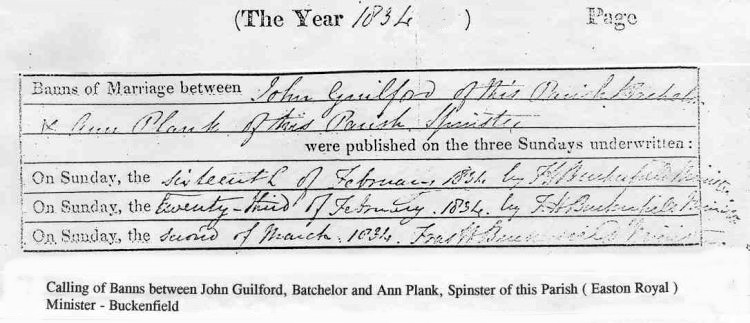 (The Year 1834 ) Page
Banns of Marriage between John Guilford of this Parish Bachelor
& Ann Plank of this Parish Spinster
were published on the three Sundays underwritten :
On Sunday, the sixteenth of February 1834 by Minister
On Sunday, the twenty-third of February 1834. by Minister
On Sunday, the second of March. 1834. Minister
Calling of Banns between John Guilford, Batchelor and Ann Plank, Spinster of this Parish ( Easton Royal )
Minister - Buckenfield